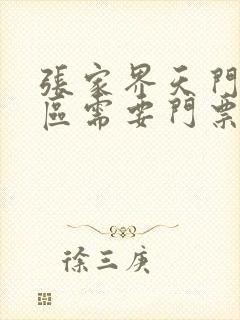 張家界天門
區需要門票
徐三庚